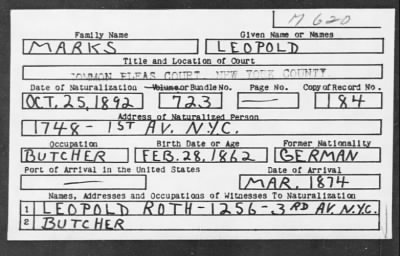 M 620
Family Name Given Name or Names
MARKS LEOPOLD
Title and Location of Court
COMMON PLEAS COURT, NEW YORK COUNTY.
Date of Naturalization Volume or Bundle No. Page No. Copy of Record No.
OCT. 25, 1892 723 — 184
Address of Naturalized Person
1748 - 1ST AV. N.Y.C.
Occupation Birth Date or Age Former Nationality
BUTCHER FEB. 28, 1862 GERMAN
Port of Arrival in the United States Date of Arrival
— MAR. 1874
Names, Addresses and Occupations of Witnesses To Naturalization
1 LEOPOLD ROTH - 1256 - 3RD AV. N.Y.C.
2 BUTCHER